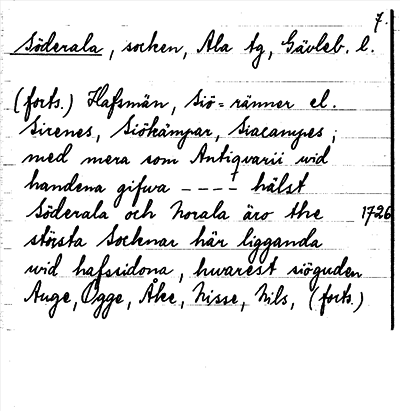 7.
Söderala, socken, Ala tg, Gävleb. l.
(forts.) Hafsmän, Siö-ränner el.
Sirenes, Siökämpar, Siacampes;
med mera som Antiqvarii wid
handena gifwa ---- hälst
Söderala och Norala äro the 1726
största Socknar här ligganda
wid hafsidona, hwarest siöguden
Auge, Ogge, Åke, Nisse, Nils, (forts.)